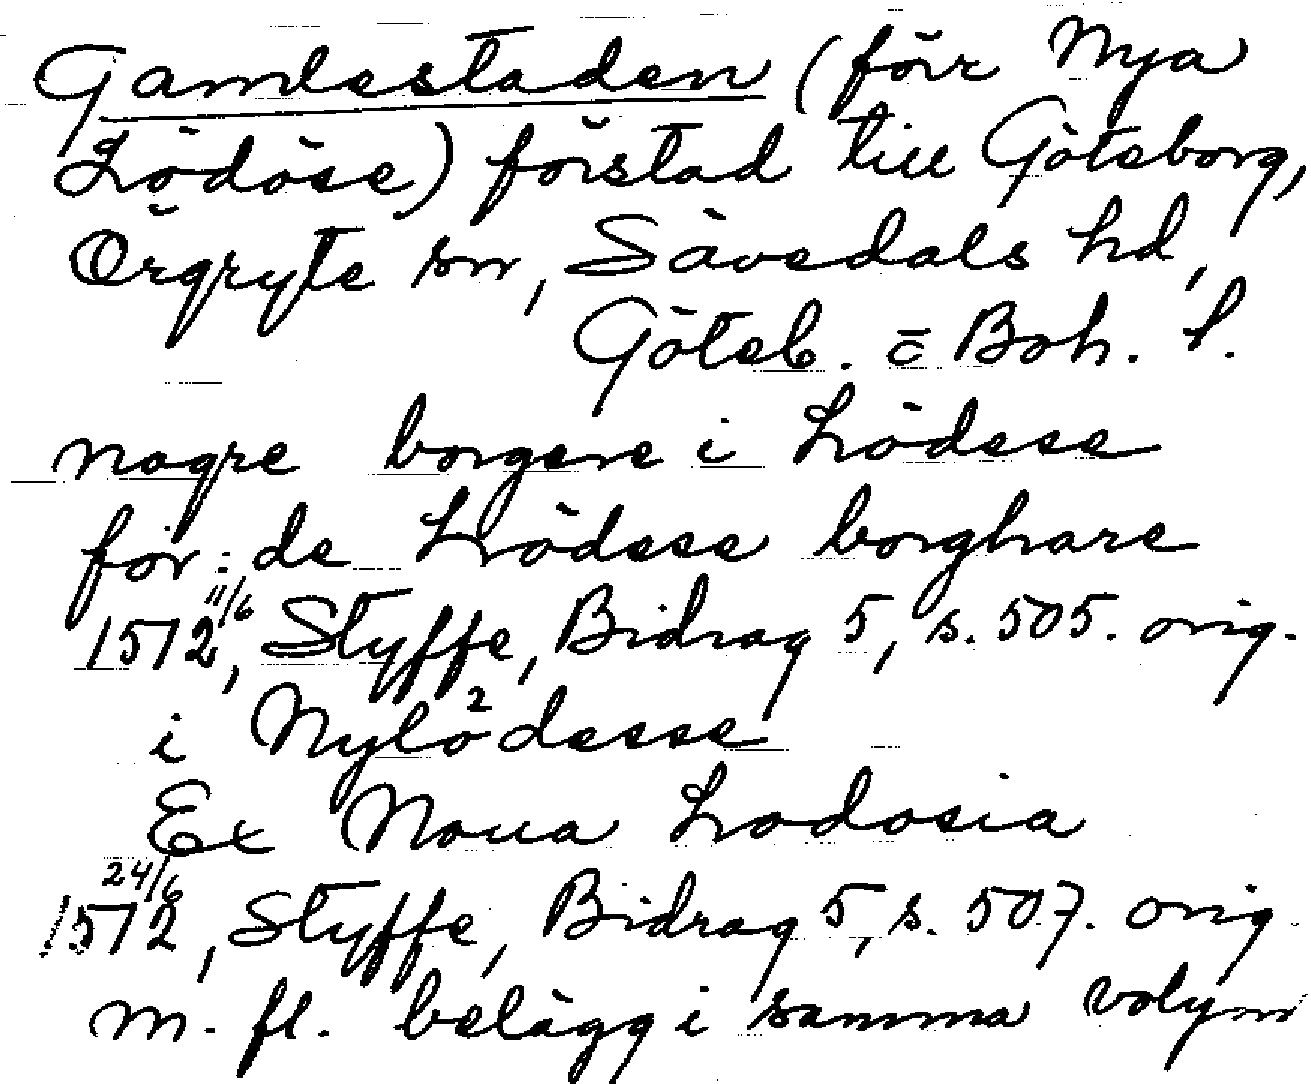 Gamlestaden (förr Nya
Lödöse) förstad till Göteborg,
Örgryte sn, Sävedals hd,
Göteb. o Boh. l.
nogre borgere i Lödese
for: de Lödese borghare
1512 11/6, Styffe, Bidrag 5, s. 505. orig.
i Nylö²desse
Ex Noua Lodosia
1512 24/6, Styffe, Bidrag 5, s. 507. orig
m. fl. belägg i samma volym